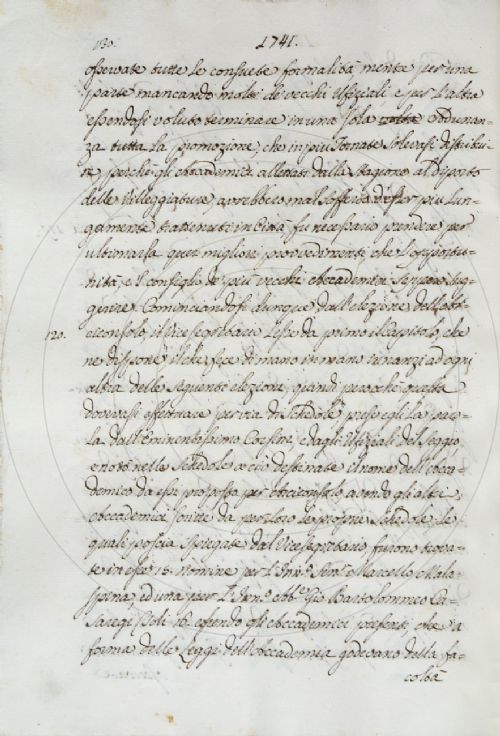 130. 1741.
osservate tutte le consuete formalità mentre per una
parte mancando molti de vecchi Ufiziali e per l'altra
essendosi voluto terminare in una sola volta Adunan-
za tutta la promozione, che in più Tornate solevasi distribui-
re perchè gli Accademici allettati dalla stagione al diporto
delle Villeggiature, avrebbero mal sofferto d'esser più lun-
gamente trattenuti in Città, fu necessario prendere per
ultimarla quei migliori provvedimenti che l'opportu-
nità, e 'l consiglio de più vecchi Accademici seppero sug-
gerire. Cominciandosi dunque dall'elezione dell'Ar-
120. ciconsolo, il Vicesegretario lesse da primo il Capitolo che
ne dispone il che fece di mano in mano innanzi ad ogni
altra delle seguenti elezioni, quindi perchè questa
dovevasi effettuare per via di Schedole prese egli la paro-
la dall'Eminentissimo Corsini e dagli Ufiziali del seggio
e notò nelle Schedole a ciò destinate il nome dell'Acca-
demico da essi proposto per Arciconsolo avendo gli altri
Accademici scritte da per loro le proprie Schedole, le
quali poscia spiegate dal Vicesegretario furono trova-
te in esse 15. nomine per l'Inn.º Sen.e Marcello Mala-
spina, ed una per l'Inn.º Ab.e Gio Bartolommeo Ca-
saregi soli 16. essendo gli Accademici presenti, che a
forma delle Leggi dell'Accademia godevano della fa-
coltà